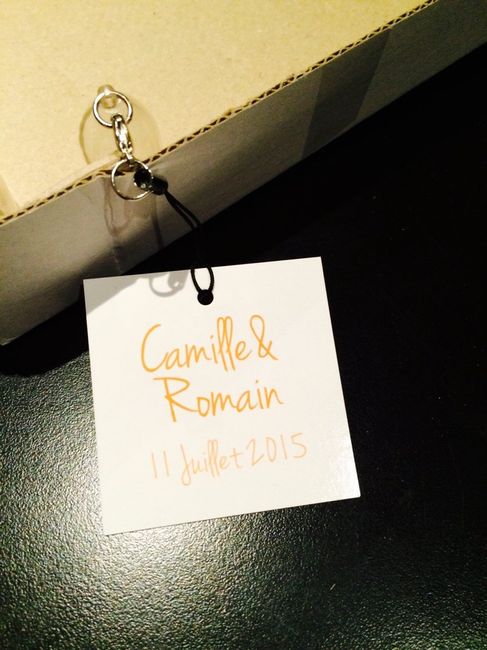 Camille &
Romain
11 Juillet 2015